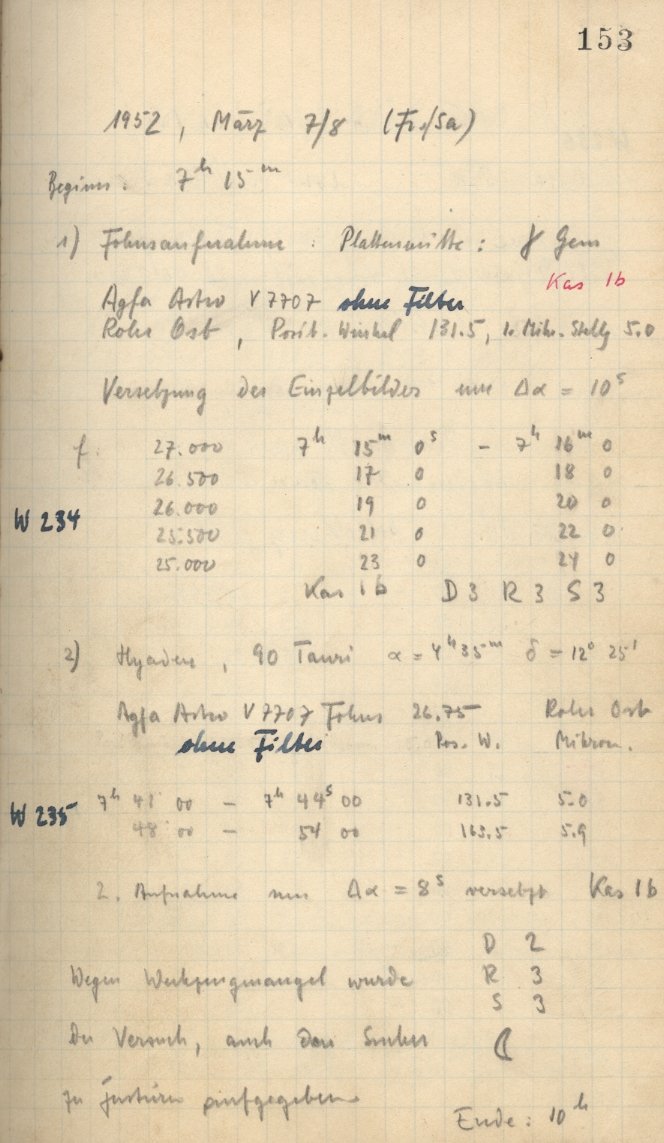 153
1952, März 7/8 (Fr./Sa)
Beginn: 7ʰ 15ᵐ
1) Fokusaufnahme : Plattenmitte : γ Gem
Kas 1b
Agfa Astro V 7707 ohne Filter
Rohr Ost, Posit. Winkel 131.5, Mikr. Stellg 5.0
Versetzung des Einzelbildes um Δα = 10ˢ
f. 27.000 7ʰ 15ᵐ 0ˢ – 7ʰ 16ᵐ 0
26.500 17 0 18 0
26.000 19 0 20 0
W 234
25.500 21 0 22 0
25.000 23 0 24 0
Kas 1b D 3 R 3 S 3
2) Hyaden, 90 Tauri α = 4ʰ 35ᵐ δ = 12° 25'
Agfa Astro V 7707 Fokus 26.75 Rohr Ost
ohne Filter Pos. W. Mikrom.
W 235 7ʰ 41 00 – 7ʰ 44ˢ 00 131.5 5.0
48 00 – 54 00 5.9
2. Aufnahme um Δα = 8ˢ versetzt Kas 1b
D 2
Wegen Werkzeugmangel wurde R 3
S 3
Der Versuch, auch den Sucher ☾
zu justieren aufgegeben.
Ende: 10ʰ